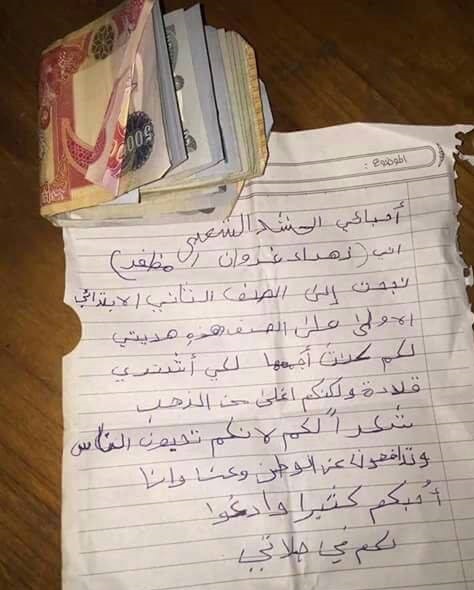 5000
الموضوع :
أحبائي الحشد الشعبي
اني (زهراء غزوان مظفر)
نجحت إلى الصف الثاني الابتدائي
الاولى على الصف هذه هديتي
لكم كنت أجمعها لكي أشتري
قلادة ولكنكم اغلى من الذهب
شكراً لكم لانكم تحبون الناس
وتدافعون عن الوطن وعنا وانا
أحبكم كثيرا وأدعوا
لكم في صلاتي